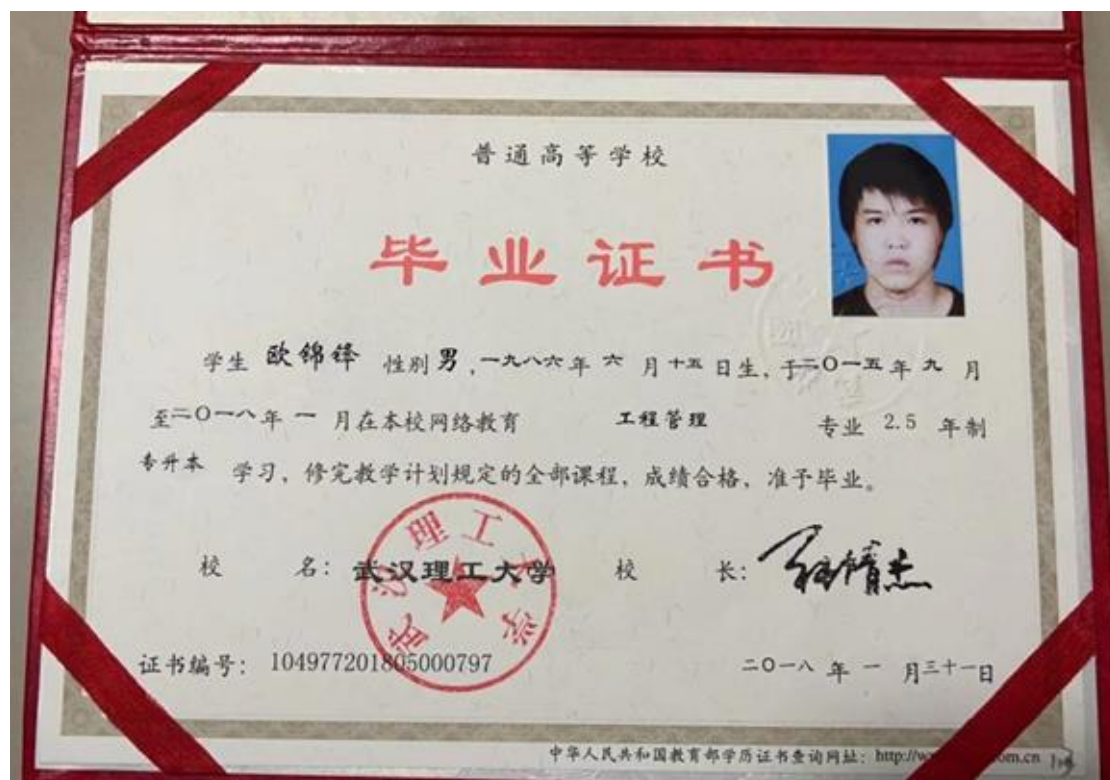 普通高等学校
毕业证书
学生 欧锦锋 性别 男，一九八六年 六 月 十五 日生，于二〇一五年 九 月
至二〇一八年 一 月在本校网络教育 工程管理 专业 2.5 年制
专升本 学习，修完教学计划规定的全部课程，成绩合格，准予毕业。
校 名：武汉理工大学 校 长：
武汉理工大学
证书编号：104977201805000797 二〇一八 年 一 月三十一日
中华人民共和国教育部学历证书查询网址：http://w om.cn